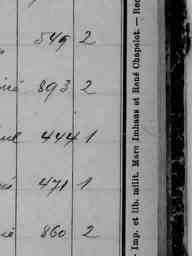 549 2
893 2
444 1
471 1
860 2
- Imp. et lib. milit. Marc Imhaus et René Chapelot. — Rec